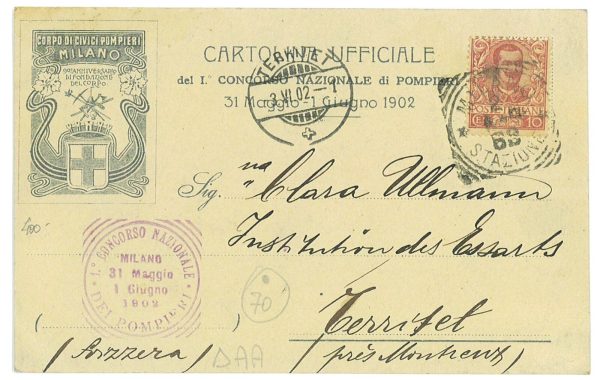 CORPO DI CIVICI POMPIERI
MILANO
90º ANNIVERSARIO
DI FONDAZIONE
DEL CORPO
CARTOLINA UFFICIALE
del I.º CONCORSO NAZIONALE di POMPIERI
31 Maggio - 1 Giugno 1902
TERRITET
3.VI.02.–1
POSTE ITALIANE
CENT. 10
STAZIONE
Sig.na Clara Ullmann
Institution des Essarts
Territet
(Svizzera) (près Montreux)
400
1º CONCORSO NAZIONALE
MILANO
31 Maggio
1 Giugno
1902
DEI POMPIERI
70
DAA